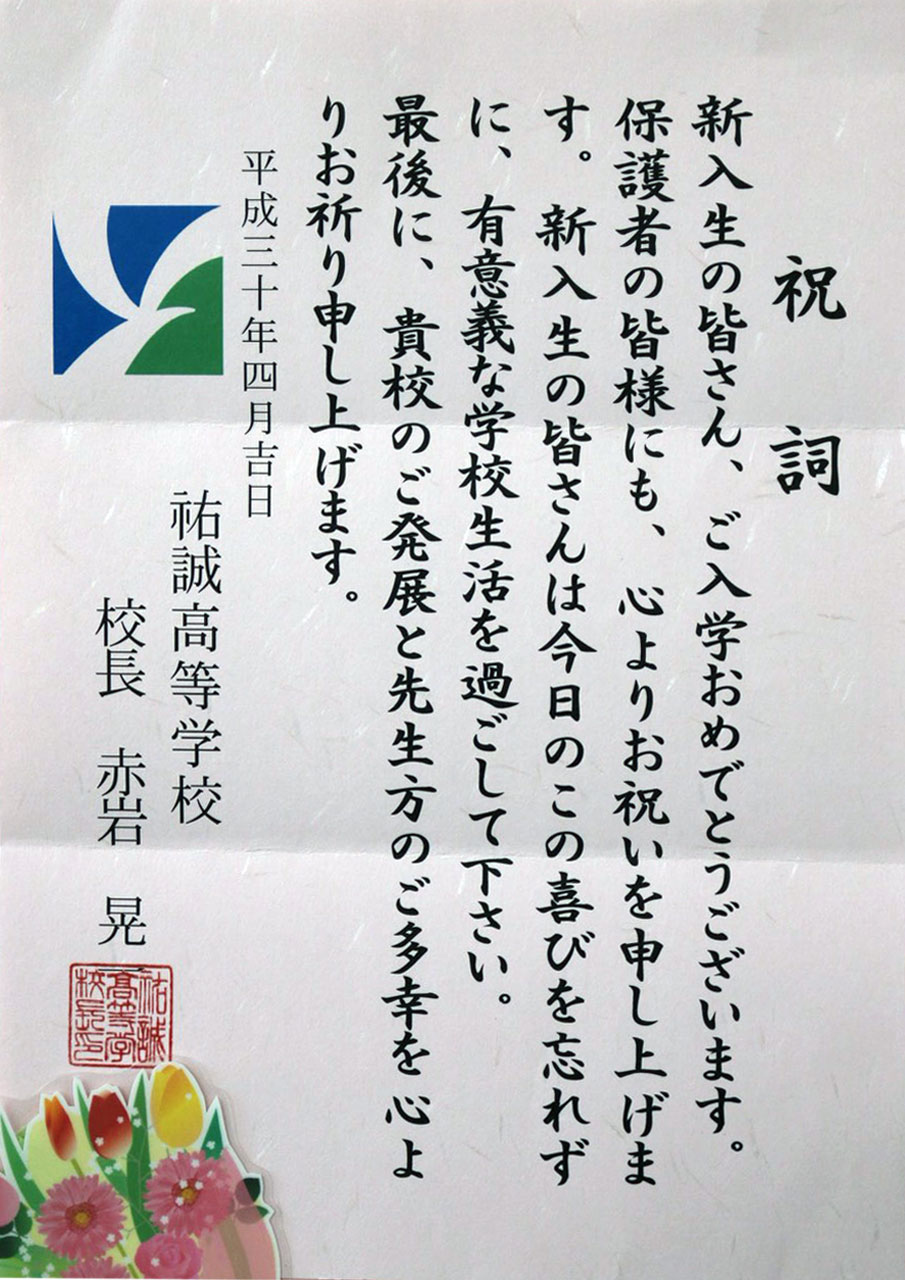 祝詞
新入生の皆さん、ご入学おめでとうございます。
保護者の皆様にも、心よりお祝いを申し上げま
す。新入生の皆さんは今日のこの喜びを忘れず
に、有意義な学校生活を過ごして下さい。
最後に、貴校のご発展と先生方のご多幸を心よ
りお祈り申し上げます。
平成三十年四月吉日
祐誠高等学校
校長 赤岩 晃
祐誠
高等学
校長印